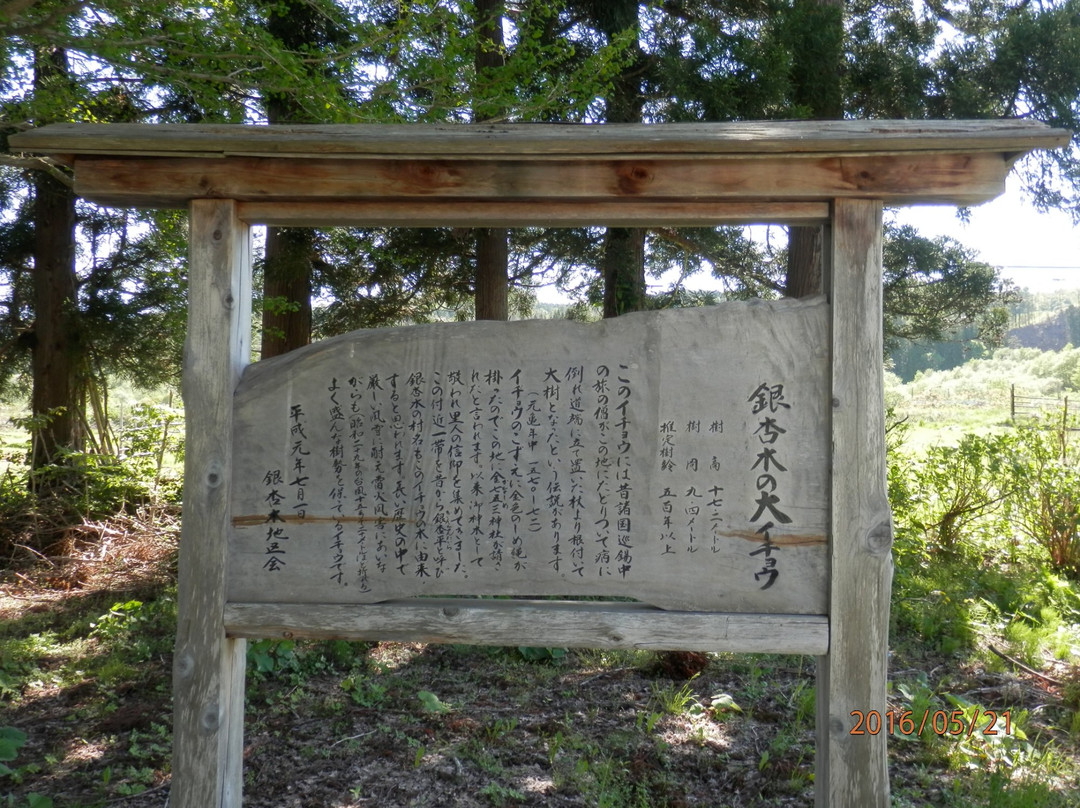 銀杏木の大イチョウ
樹高 十七二メートル
樹周 九四メートル
推定樹齢 五百年以上
このイチョウには昔諸国巡錫中
の旅の僧がこの地にやどりついて病に
倒れ道端に立て置いた杖より根付いて
大樹となったという伝説があります。
(元亀年中 一五七〇-七二)
イチョウのこずえに金色のしめ縄が
掛ったのでこの地に金七五三神社が請さ
れたと言われます。以来御神木として
敬われ里人の信仰を集めてきました。
この付近一帯をも昔から銀杏平と呼び
銀杏木の村名もこのイチョウの木に由来
すると思われます。長い歴史の中で
厳しい風雪に耐え雷火風害にあいな
がらも(昭和二十九年の台風十五号で
よく盛んな樹勢を保っているイチョウです。
平成元年七月一日
銀杏木地区会
2016/05/21